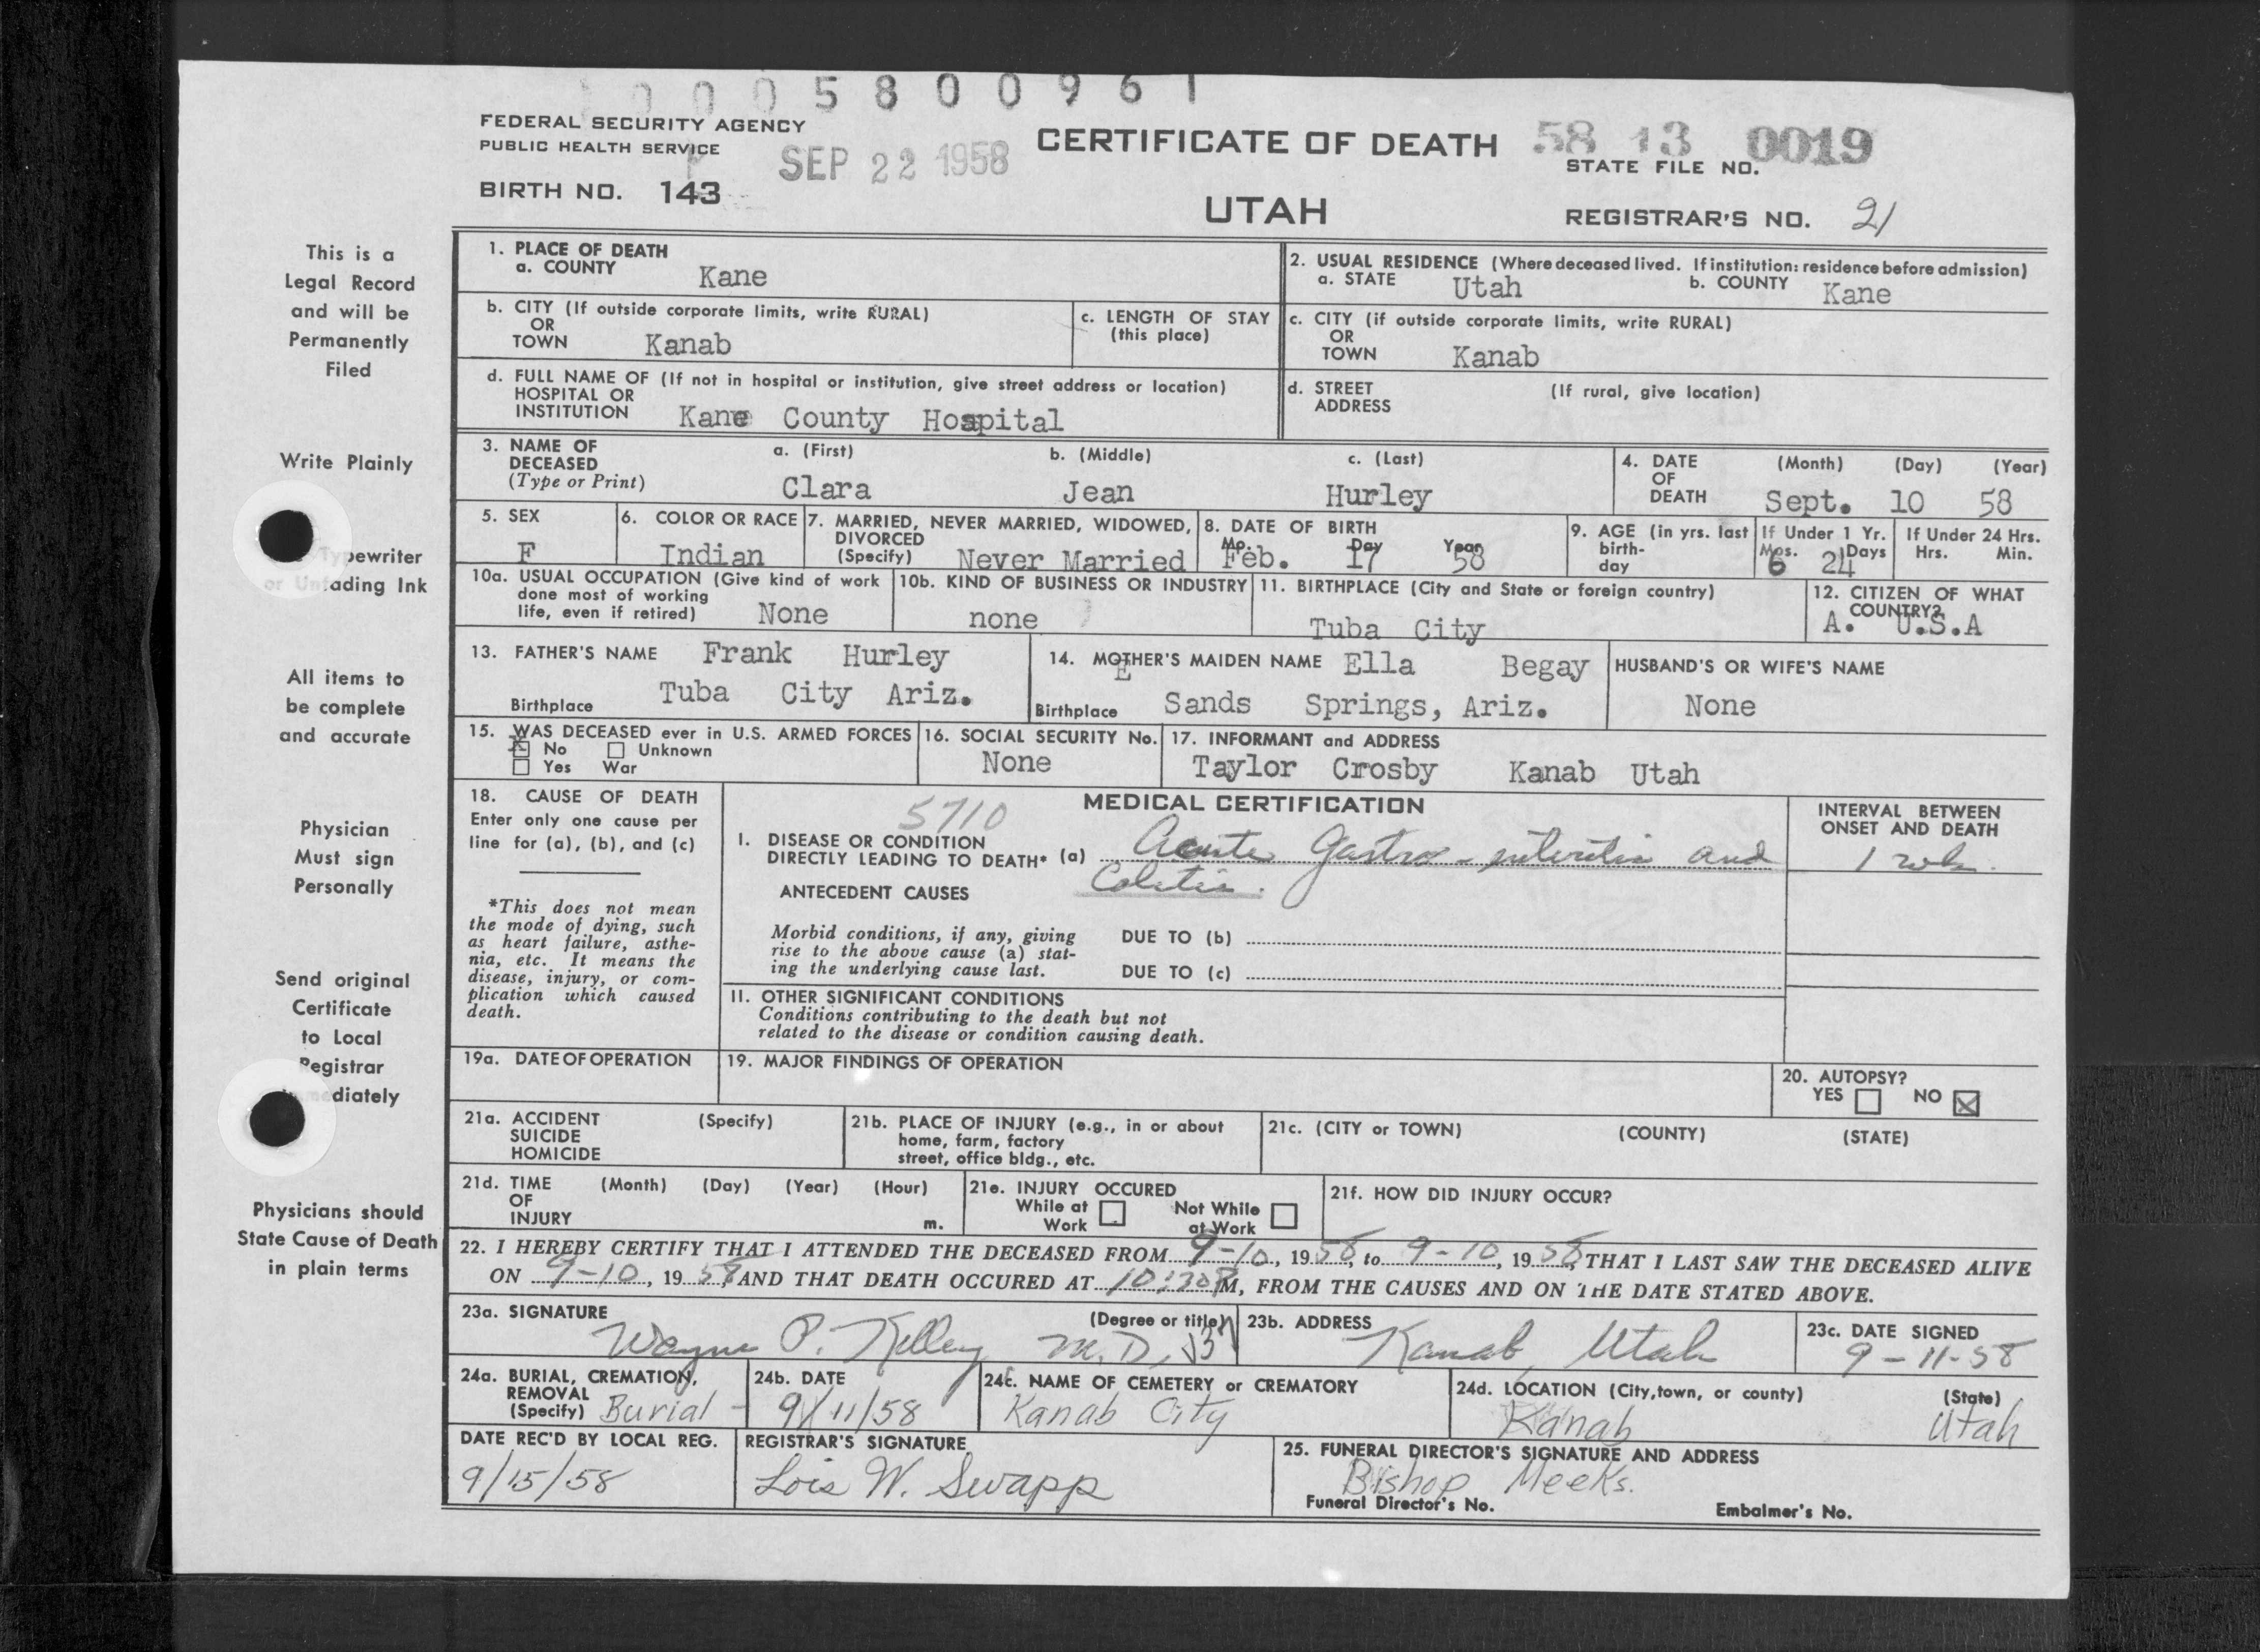 0 0 0 5 8 0 0 9 6 1
FEDERAL SECURITY AGENCY
PUBLIC HEALTH SERVICE
SEP 22 1958
CERTIFICATE OF DEATH
58 13 0019
STATE FILE NO.
BIRTH NO. 143
UTAH
REGISTRAR'S NO. 21
This is a
Legal Record
and will be
Permanently
Filed
Write Plainly
Typewriter
or Unfading Ink
All items to
be complete
and accurate
Physician
Must sign
Personally
Send original
Certificate
to Local
Registrar
Immediately
Physicians should
State Cause of Death
in plain terms
1. PLACE OF DEATH
a. COUNTY Kane
2. USUAL RESIDENCE (Where deceased lived. If institution: residence before admission)
a. STATE Utah b. COUNTY Kane
b. CITY (If outside corporate limits, write RURAL)
OR
TOWN Kanab
c. LENGTH OF STAY
(this place)
c. CITY (if outside corporate limits, write RURAL)
OR
TOWN Kanab
d. FULL NAME OF (If not in hospital or institution, give street address or location)
HOSPITAL OR
INSTITUTION Kane County Hospital
d. STREET (If rural, give location)
ADDRESS
3. NAME OF
DECEASED
(Type or Print)
a. (First) b. (Middle) c. (Last)
Clara Jean Hurley
4. DATE (Month) (Day) (Year)
OF
DEATH Sept. 10 58
5. SEX
F
6. COLOR OR RACE
Indian
7. MARRIED, NEVER MARRIED, WIDOWED,
DIVORCED
(Specify) Never Married
8. DATE OF BIRTH
Mo. Day Year
Feb. 17 58
9. AGE (in yrs. last
birth-
day
If Under 1 Yr.
Mos. Days
6 24
If Under 24 Hrs.
Hrs. Min.
10a. USUAL OCCUPATION (Give kind of work
done most of working
life, even if retired) None
10b. KIND OF BUSINESS OR INDUSTRY
none
11. BIRTHPLACE (City and State or foreign country)
Tuba City
12. CITIZEN OF WHAT
COUNTRY?
A. U.S.A
13. FATHER'S NAME Frank Hurley
Birthplace Tuba City Ariz.
14. MOTHER'S MAIDEN NAME Ella Begay
E
Birthplace Sands Springs, Ariz.
HUSBAND'S OR WIFE'S NAME
None
15. WAS DECEASED ever in U.S. ARMED FORCES
X No Unknown
Yes War
16. SOCIAL SECURITY No.
None
17. INFORMANT and ADDRESS
Taylor Crosby Kanab Utah
18. CAUSE OF DEATH
Enter only one cause per
line for (a), (b), and (c)
*This does not mean
the mode of dying, such
as heart failure, asthe-
nia, etc. It means the
disease, injury, or com-
plication which caused
death.
5710
MEDICAL CERTIFICATION
I. DISEASE OR CONDITION
DIRECTLY LEADING TO DEATH* (a) Acute Gastro-enteritis and
Colitis.
ANTECEDENT CAUSES
Morbid conditions, if any, giving
rise to the above cause (a) stat-
ing the underlying cause last.
DUE TO (b)
DUE TO (c)
II. OTHER SIGNIFICANT CONDITIONS
Conditions contributing to the death but not
related to the disease or condition causing death.
INTERVAL BETWEEN
ONSET AND DEATH
1 wk.
19a. DATE OF OPERATION
19. MAJOR FINDINGS OF OPERATION
20. AUTOPSY?
YES NO X
21a. ACCIDENT (Specify)
SUICIDE
HOMICIDE
21b. PLACE OF INJURY (e.g., in or about
home, farm, factory
street, office bldg., etc.
21c. (CITY or TOWN) (COUNTY) (STATE)
21d. TIME (Month) (Day) (Year) (Hour)
OF
INJURY m.
21e. INJURY OCCURED
While at Work
Not While at Work
21f. HOW DID INJURY OCCUR?
22. I HEREBY CERTIFY THAT I ATTENDED THE DECEASED FROM 9-10, 1958, to 9-10, 1958, THAT I LAST SAW THE DECEASED ALIVE
ON 9-10, 1958, AND THAT DEATH OCCURED AT 10:30 PM, FROM THE CAUSES AND ON THE DATE STATED ABOVE.
23a. SIGNATURE (Degree or title)
Wayne P. Kelley M.D.
23b. ADDRESS
Kanab, Utah
23c. DATE SIGNED
9-11-58
24a. BURIAL, CREMATION,
REMOVAL
(Specify) Burial -
24b. DATE
9/11/58
24c. NAME OF CEMETERY or CREMATORY
Kanab City
24d. LOCATION (City, town, or county) (State)
Kanab Utah
DATE REC'D BY LOCAL REG.
9/15/58
REGISTRAR'S SIGNATURE
Lois W. Swapp
25. FUNERAL DIRECTOR'S SIGNATURE AND ADDRESS
Bishop Meeks.
Funeral Director's No. Embalmer's No.